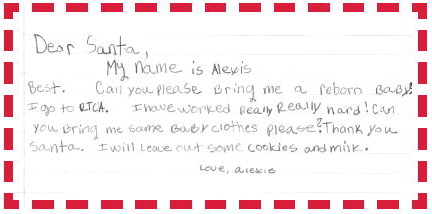 Dear Santa,
My name is Alexis
Best. Can you please Bring me a reborn Baby?
I go to RTCA. I have worked really Really hard! Can
you Bring me some Baby clothes please? Thank you
Santa. I will leave out some cookies and milk.
Love, alexis